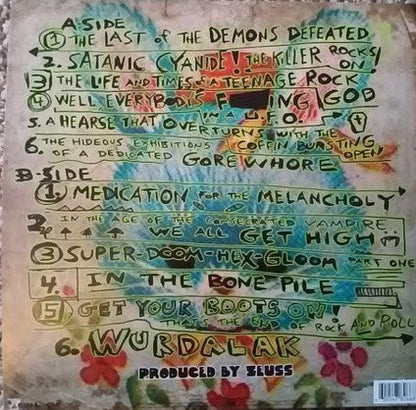 A-SIDE
① THE LAST of THE DEMONS DEFEATED
2. SATANIC CYANIDE! THE KILLER ROCKS ON!
3 THE LIFE AND TIMES OF A TEENAGE ROCK
④ WELL EVERYBODY'S F ING GOD
5. A HEARSE THAT OVERTURN IN A U.F.O.
6. THE HIDEOUS EXHIBITIONS OF A DEDICATED GOREWHORE
WITH THE COFFIN BURSTING OPEN
B-SIDE
① MEDICATION for THE MELANCHOLY
2. IN THE AGE OF THE CONSECRATED VAMPIRE
WE ALL GET HIGH
③ SUPER-DOOM-HEX-GLOOM PART ONE
4. IN THE BONE PILE
5 GET YOUR BOOTS ON!
THAT'S THE END OF ROCK AND ROLL
6. WURDALAK
PRODUCED BY ZEUSS